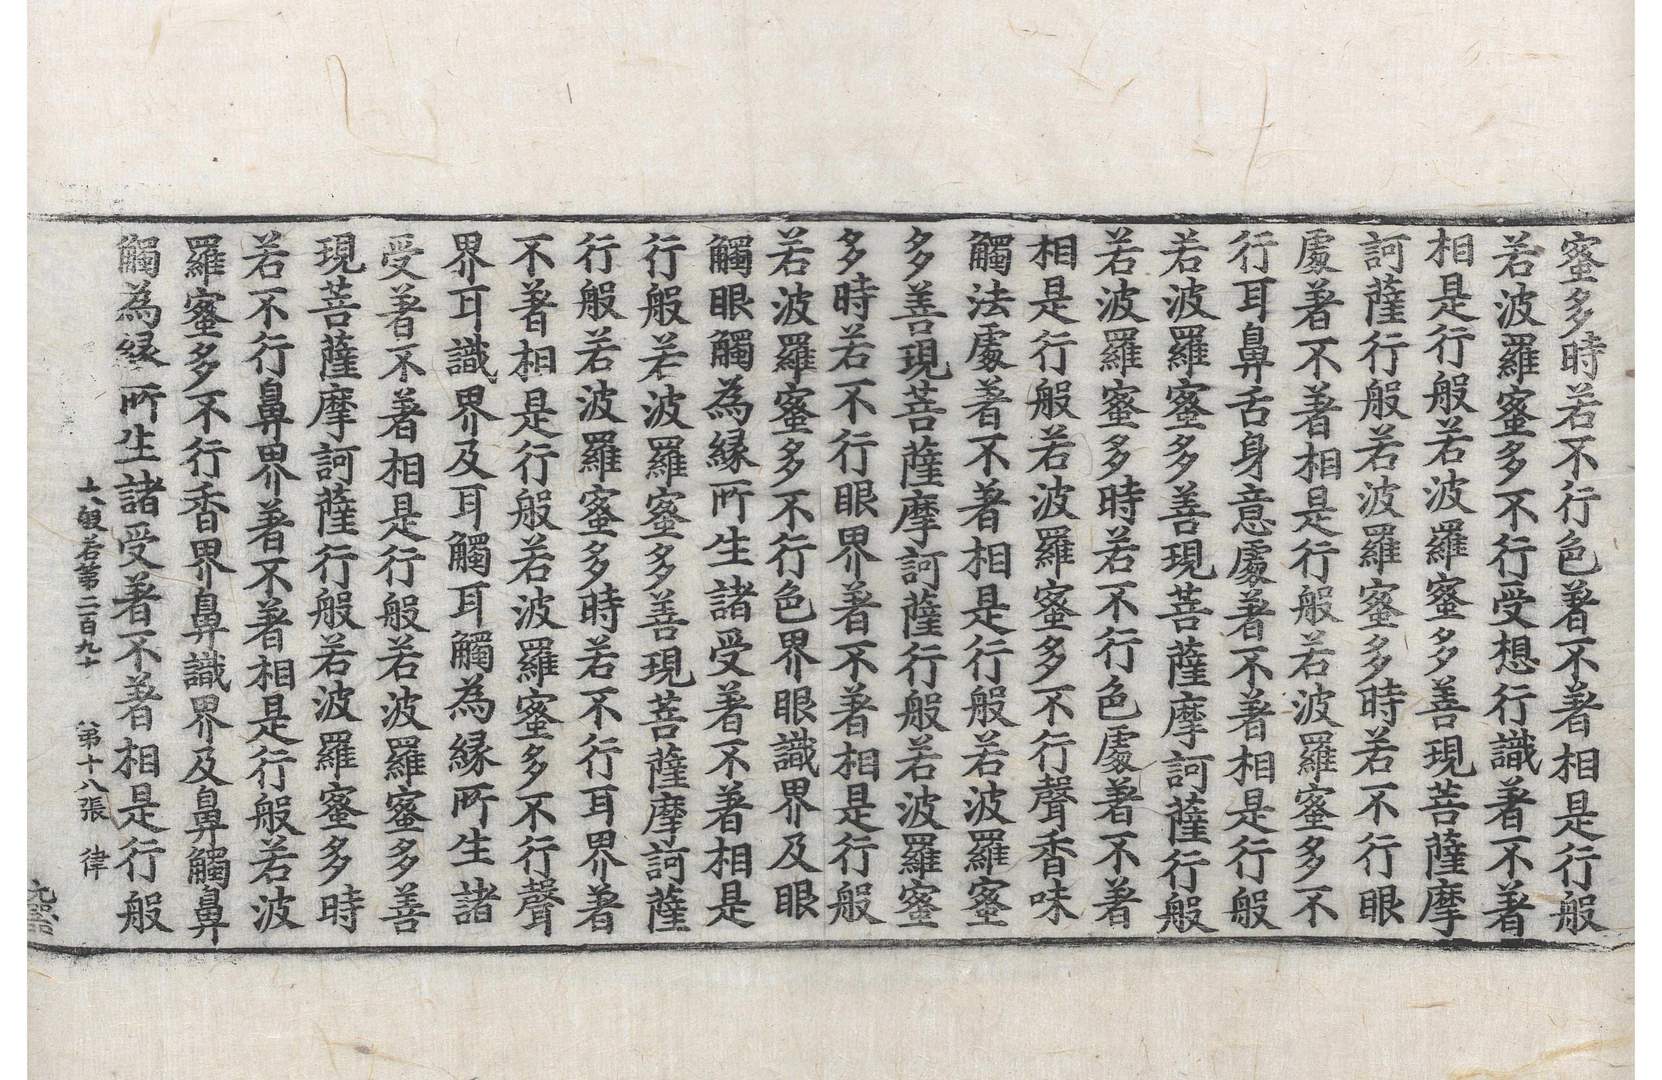 蜜多時若不行色著不著相是行般
若波羅蜜多不行受想行識著不著
相是行般若波羅蜜多善現菩薩摩
訶薩行般若波羅蜜多時若不行眼
處著不著相是行般若波羅蜜多不
行耳鼻舌身意處著不著相是行般
若波羅蜜多善現菩薩摩訶薩行般
若波羅蜜多時若不行色處著不著
相是行般若波羅蜜多不行聲香味
觸法處著不著相是行般若波羅蜜
多善現菩薩摩訶薩行般若波羅蜜
多時若不行眼界著不著相是行般
若波羅蜜多不行色界眼識界及眼
觸眼觸為緣所生諸受著不著相是
行般若波羅蜜多善現菩薩摩訶薩
行般若波羅蜜多時若不行耳界著
不著相是行般若波羅蜜多不行聲
界耳識界及耳觸耳觸為緣所生諸
受著不著相是行般若波羅蜜多善
現菩薩摩訶薩行般若波羅蜜多時
若不行鼻界著不著相是行般若波
羅蜜多不行香界鼻識界及鼻觸鼻
觸為緣所生諸受著不著相是行般
大般若第二百九十 第十八張 律